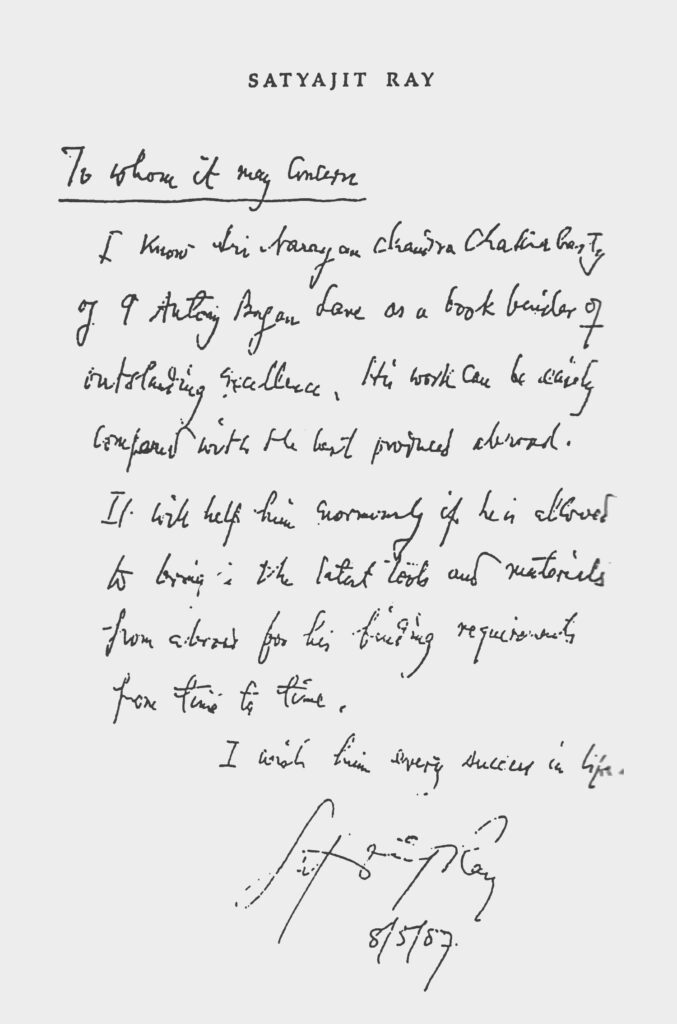 SATYAJIT RAY
To whom it may Concern
I know Sri Narayan Chandra Chakrabarty
of 9 Antony Bagan Lane as a book binder of
outstanding excellence. His work can be easily
compared with the best produced abroad.
It will help him enormously if he is allowed
to bring in the latest tools and materials
from abroad for his binding requirements
from time to time.
I wish him every success in life.
Satyajit Ray
8/5/87.